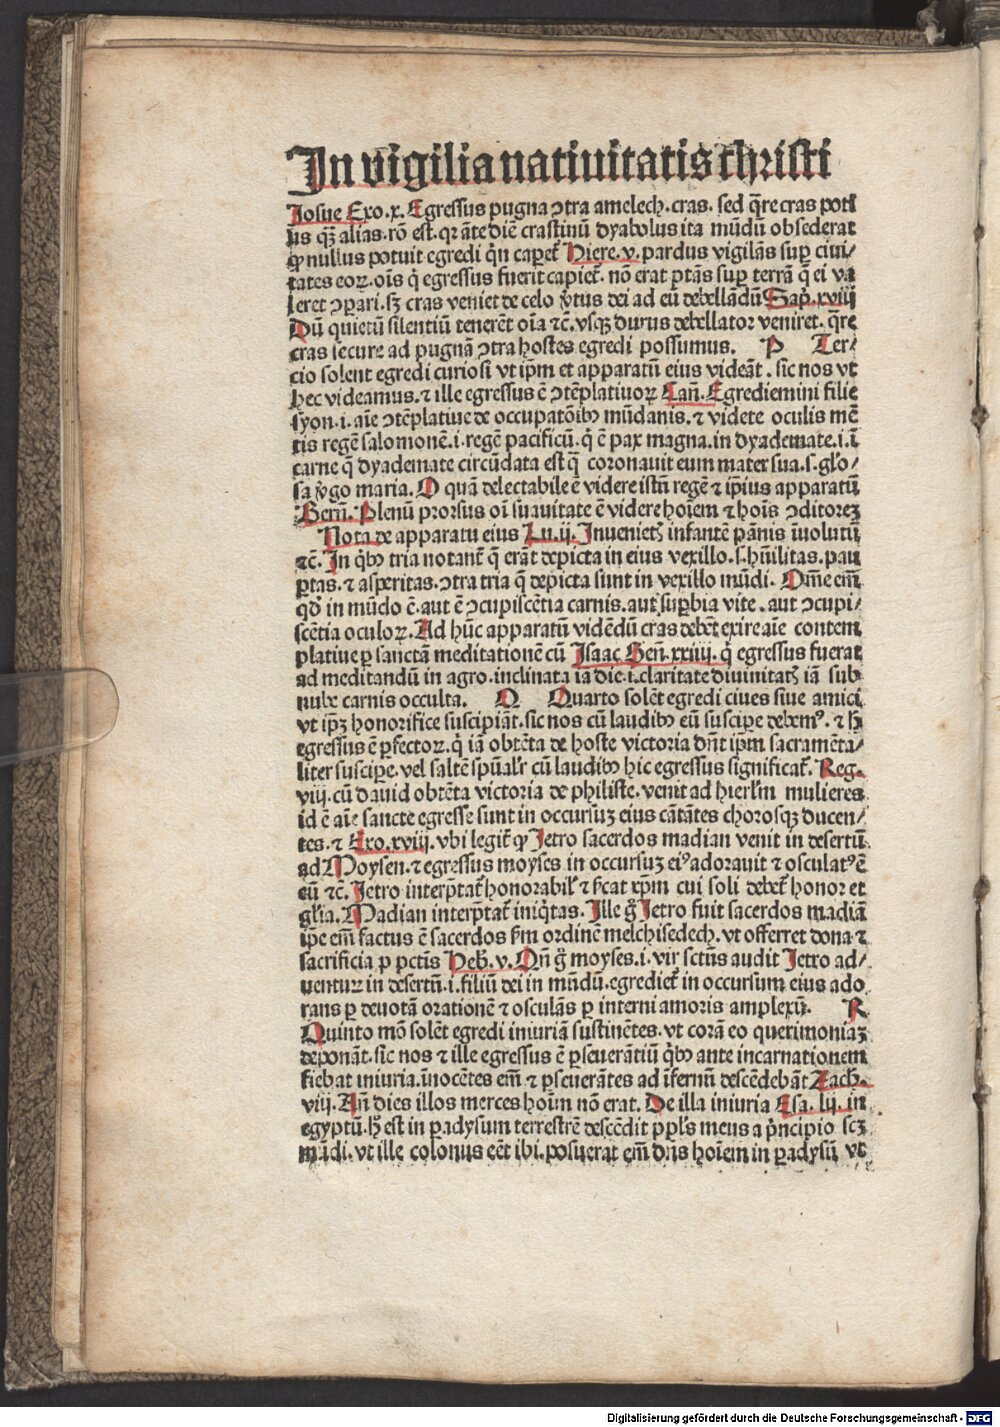 In vigilia natiuitatis christi
Iosue Exo.x. Egressus pugna ↄtra amelech. cras. sed q̄re cras poti
us qȝ alias. rō est. qr āte diē crastinū dyabolus ita mūdū obsederat
ꝙ nullus potuit egredi qn caperet̄ Hiere.v. pardus vigilās suꝑ ciui/
tates eoꝝ. oīs q̇ egressus fuerit capiet̄. nō erat ptās suꝑ terrā q̄ ei va
leret ↄpari. sȝ cras veniet de celo v̓tus dei ad eū debellādū Sap̄.xviij
Dū quietū silentiū tenerēt oīa ⁊c̄. vsqȝ durus debellator veniret. q̄re
cras secure ad pugnā ↄtra hostes egredi possumus. P Ter/
cio solent egredi curiosi vt ip̄m et apparatū eius videāt. sic nos vt
hec videamus. ⁊ ille egressus ē ↄtēplatiuoꝝ Cañ. Egrediemini filie
syon. i. aīe ↄtēplatiue de occupatōibꝯ mūdanis. ⁊ videte oculis mē
tis regē salomonē. i. regē pacificū. q̇ ē pax magna. in dyademate. i. ī
carne q̄ dyademate circūdata est q̄ coronauit eum mater sua. s. glo/
sa v̓go maria. O quā delectabile ē videre istū regē ⁊ ip̄ius apparatū
Bern̄. Plenū prorsus oī suauitate ē videre hoīem ⁊ hoīs ↄditorez
Nota de apparatu eius Lu.ij. Inuenietȝ infantē pānis īuolutū
⁊c̄. In qb̓ꝯ tria notant̄ q̄ erāt depicta in eius vexillo. s. hūilitas. pau
ꝑtas. ⁊ asperitas. ↄtra tria q̄ depicta sunt in vexillo mūdi. Om̄e em̄
qd̓ in mūdo ē. aut ē ↄcupiscētia carnis. aut suꝑbia vite. aut ↄcupi/
scētia oculoꝝ. Ad hūc apparatū vidēdū cras debēt exire aīe contem
platiue ꝑ sanctā meditationē cū Isaac Geñ.xxiiij. q̇ egressus fuerat
ad meditandū in agro. inclinata iā die. i. claritate diuinitatȝ iā sub
nube carnis occulta. Q Quarto solēt egredi ciues siue amici
vt ip̄ȝ honorifice suscipiāt. sic nos cū laudibꝯ eū suscipe debemꝰ. ⁊ h̄
egressus ē ꝑfectoꝝ. q̇ iā obtēta de hoste victoria dn̄t ip̄m sacramēta/
liter suscipe. vel saltē spūalr̓ cū laudibꝯ hic egressus significat̄. Reg.
viij. cū dauid obtēta victoria de philiste. venit ad hierlm̄ mulieres
id ē aīe sancte egresse sunt in occursuȝ eius cātātes chorosqȝ ducen/
tes. ⁊ Exo.xviij. vbi legit̄ ꝙ Ietro sacerdos madian venit in desertū
ad Moysen. ⁊ egressus moyses in occursuȝ eiꝰ adorauit ⁊ osculatꝰ ē
eū ⁊c̄. Ietro interp̄tat̄ honorabil̓ ⁊ s̓cat xp̄m cui soli debet̄ honor et
gl̓ia. Madian interp̄tat̄ iniq̇tas. Ille g̊ Ietro fuit sacerdos madiā
ip̄e em̄ factus ē sacerdos s̓m ordinē melchisedech. vt offerret dona ⁊
sacrificia ꝑ pctīs Heb̓.v. Qn̄ g̊ moyses. i. vir sctūs audit Ietro ad/
venturȝ in desertū. i. filiū dei in mūdū. egrediet̄ in occursum eius ado
rans ꝑ deuotā orationē ⁊ osculās ꝑ interni amoris amplexū. R
Quinto mō solēt egredi iniuriā sustinētes. vt corā eo querimoniaȝ
deponāt. sic nos ⁊ ille egressus ē ꝑseuerātiū qb̓ꝯ ante incarnationem
fiebat iniuria. īnocētes em̄ ⁊ ꝑseuerātes ad īfernū descēdebāt Zach̓.
viij. Añ dies illos merces hoīm nō erat. De illa iniuria Esa. lij. in
egyptū. h̄ est in ꝑadysum terrestrē descēdit ppl̓s meus a p̓ncipio scȝ
mūdi. vt ille colonus eēt ibi. posuerat em̄ dn̄s hoīem in ꝑadysū vt
Digitalisierung gefördert durch die Deutsche Forschungsgemeinschaft - DFG